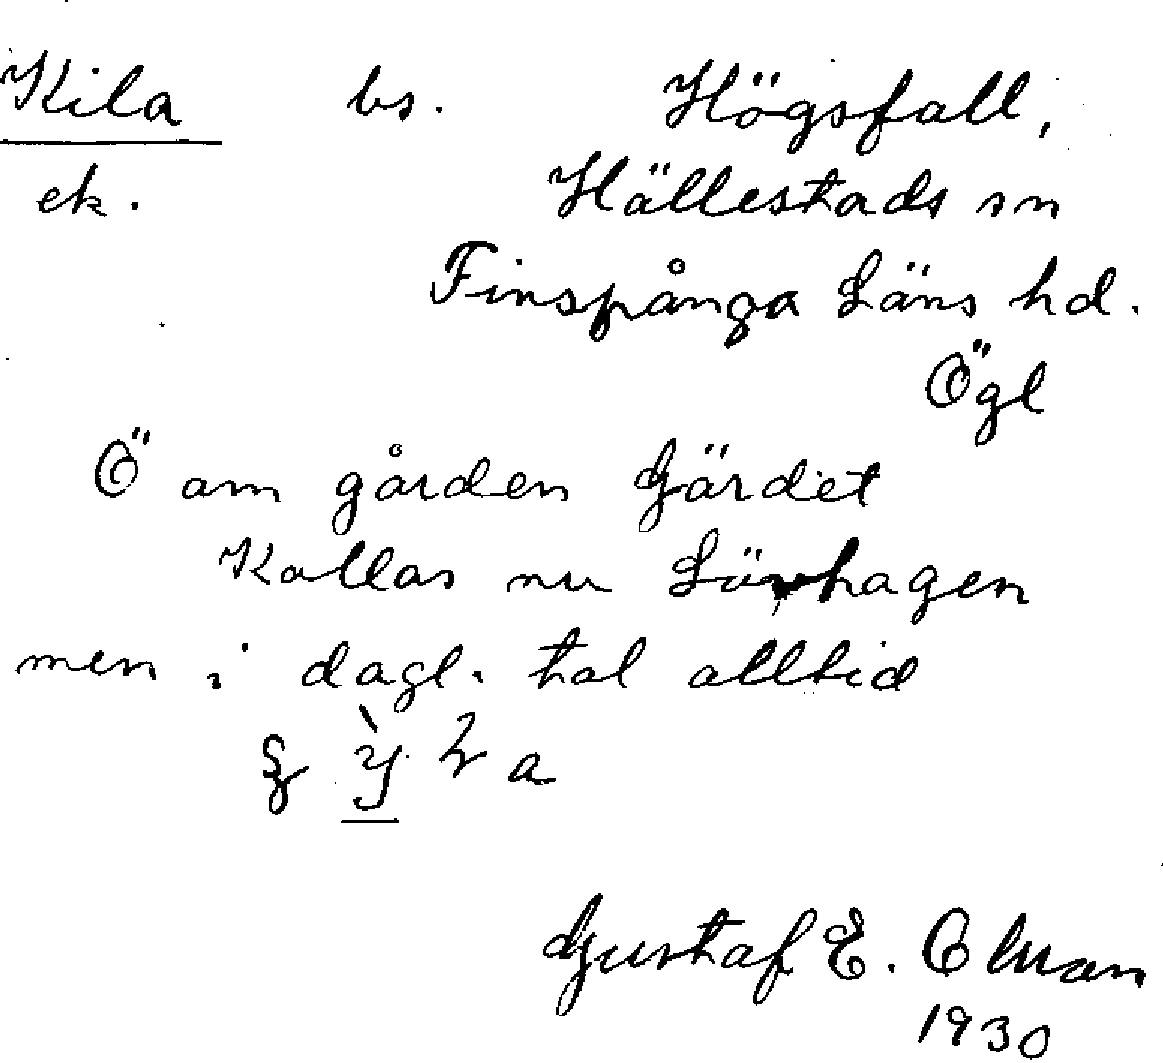 Kila bs. Högsfall,
ek. Hällestads sn
Finspånga Läns hd.
Ögl
Ö om gården Gärdet
Kallas nu Lövhagen
men i dagl. tal alltid
Gustaf E.
1930